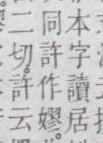 本字讀居
同許作嫪。
二切。許云